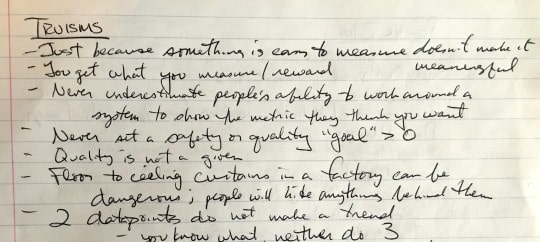 TRUISMS
- Just because something is easy to measure doesn't make it
meaningful
- You get what you measure/reward
- Never underestimate people's ability to work around a
system to show the metric they think you want
- Never set a safety or quality "goal" > 0
- Quality is not a given
- Floor to ceiling curtains in a factory can be
dangerous; people will hide anything behind them
- 2 datapoints do not make a trend
- you know what, neither do 3